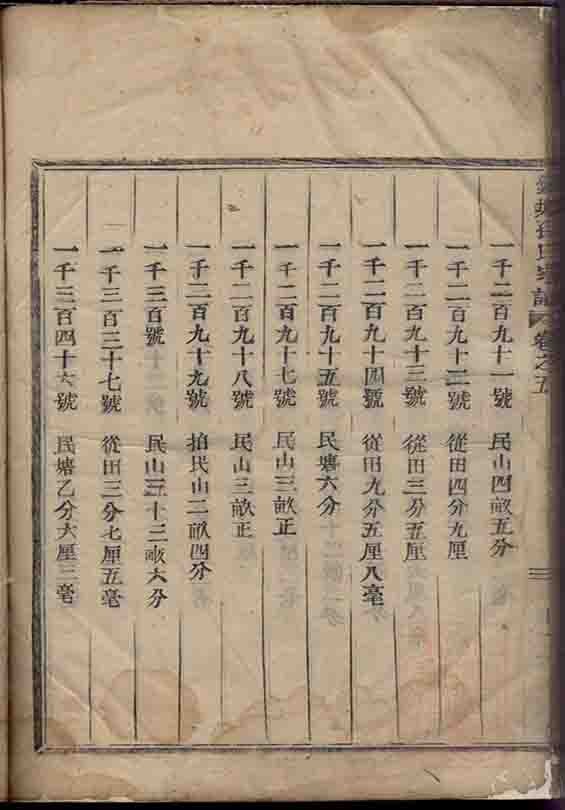 氏宗譜 卷之五
一千二百九十一號 民山四畝五分
一千二百九十二號 從田四分九厘
一千二百九十三號 從田三分五厘
一千二百九十四號 從田九分五厘八毫
一千二百九十五號 民塘六分
一千二百九十七號 民山三畝正
一千二百九十八號 民山三畝正
一千二百九十九號 拍民山二畝四分
一千三百號 民山五十二畝六分
一千三百三十七號 從田三分七厘五毫
一千三百四十六號 民塘乙分六厘三毫